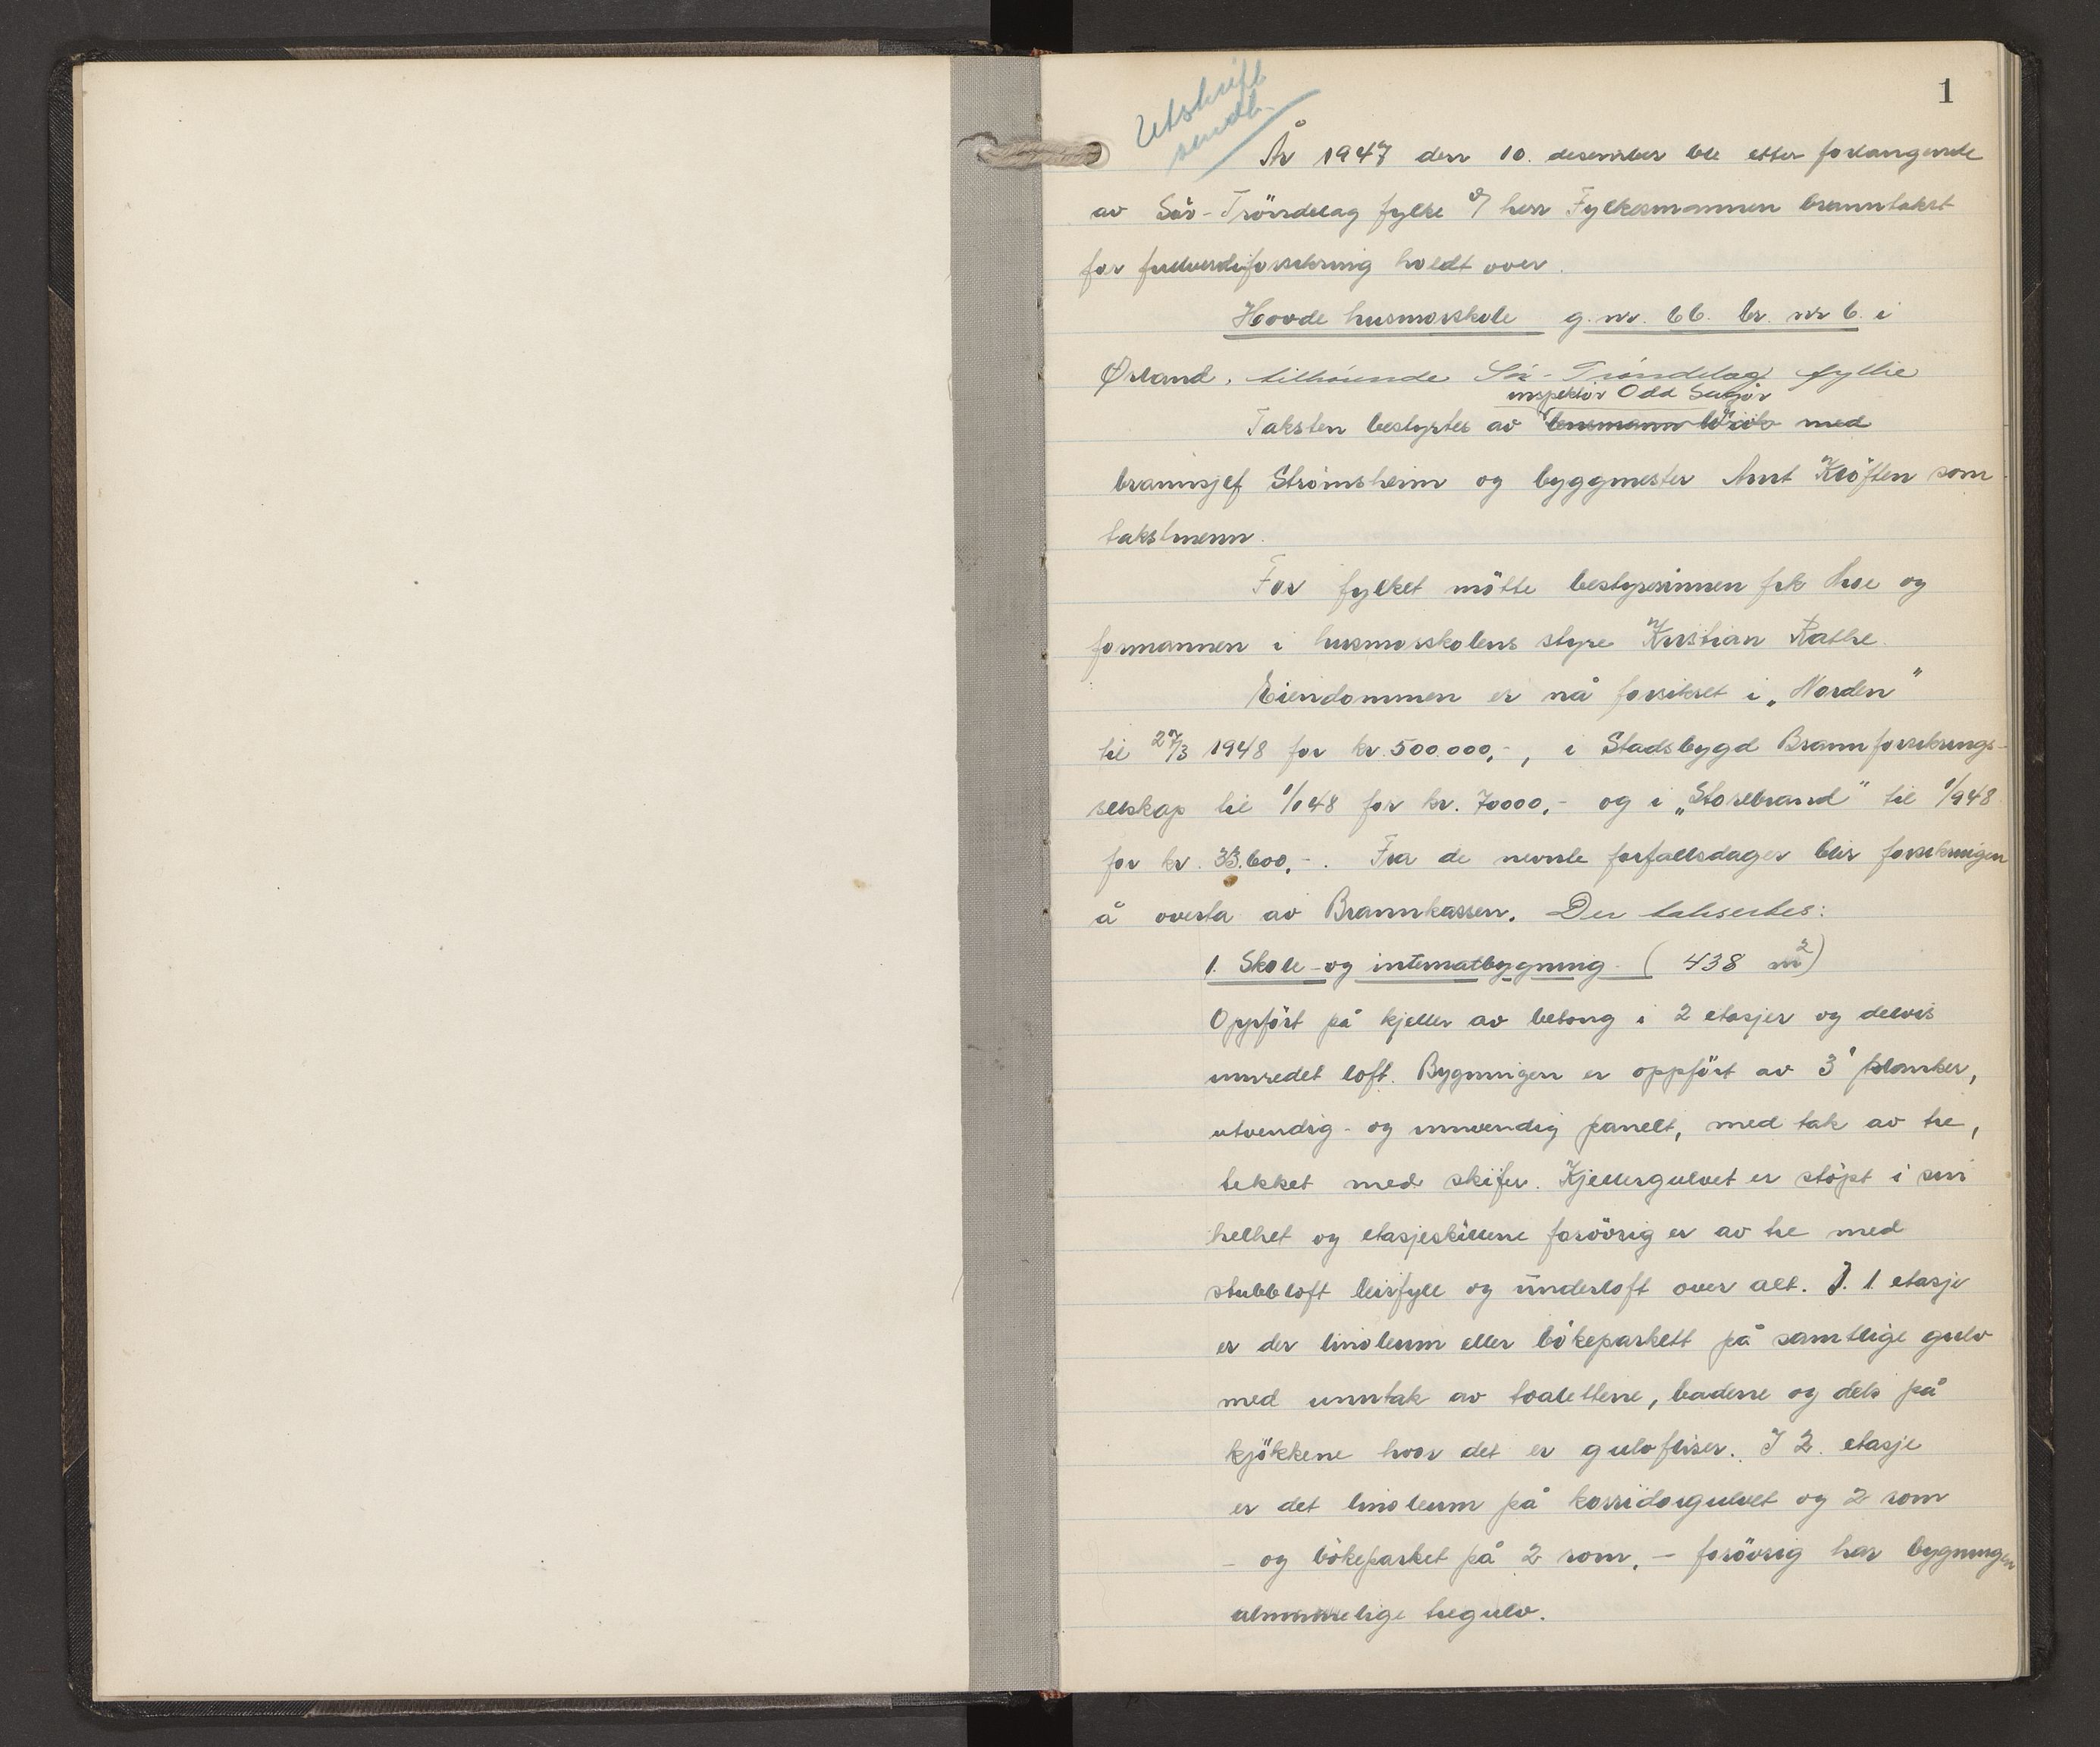 1
Utskrift
sendt
År 1947 den 10. desember ble etter forlangende
av Sør-Tröndelag fylke v/ herr Fylkesmannen branntakst
for fullverdiforsikring holdt over.
Hovde husmorskole g.nr. 66. br. nr 6. i
Ørland, tilhörende Sör-Tröndelag fylke
inspektör Odd Sagör
Taksten bestyrtes av lensmann med
brannsjef Strömsheim og byggmester Arnt Klöften som
takstmenn.
For fylket mötte bestyrerinnen frk Moe og
formannen i husmorskolens styre Kristian Rathe.
Eiendommen er nå forsikret i „Norden"
til 27/3 1948 for kr. 500.000,-, i Stadsbygd Brannforsikrings-
selskap til 1/1 48 for kr. 70000,- og i „Storebrand" til 1/9 48
for kr. 33.600,-. Fra de nevnte forfallsdager blir forsikringen
å overta av Brannkassen. Der takseres:
1. Skole- og internatbygning. (438 m²)
Oppfört på kjeller av betong i 2 etasjer og delvis
innredet loft. Bygningen er oppfört av 3" planker,
utvendig- og innvendig panelt, med tak av tre,
tekket med skifer. Kjellergulvet er stöpt i sin
helhet og etasjeskillene forövrig er av tre med
stubbloft leirfyll og underloft over alt. I. 1. etasje
er der linoleum eller bökeparkett på samtlige gulv
med unntak av toalettene, badene og dels på
kjökkene hvor det er gulvfliser. I 2. etasje
er det linoleum på korridorgulvet og 2 rom
- og bökeparket på 2 rom. - forövrig har bygningen
alminnelige tregulv.